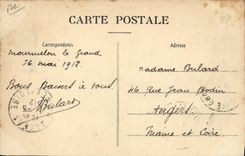 CARTE POSTALE
Correspondance
Adresse
Mourmelon le grand
16 mai 1912.
Bons Baisers à tous.
Madame Bulard
46 Rue Jean Bodin
Angers
Maine et Loire